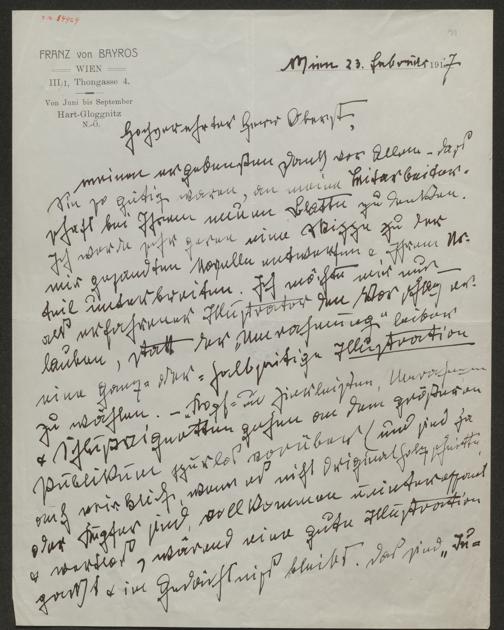 I.N. 84929
FRANZ von BAYROS
WIEN
III/1, Thongasse 4.
Von Juni bis September
Hart-Gloggnitz
N.-Ö.
Wien 23. Februar 1917
Hochverehrter Herr Oberst,
meinen ergebensten Dank vor Allem – dass
Sie so gütig waren, an meine Mitarbeiter-
schaft bei Ihrem neuen Blatte zu denken.
Ich werde sehr gerne eine Skizze zu der
mir gesandten Novelle entwerfen & Ihrem Ur-
teil unterbreiten. Ich möchte mir nur
als erfahrener Illustrator den Vorschlag er-
lauben, statt der „Umrahmung“ lieber
eine ganz- oder halbseitige Illustration
zu wählen. – Kopf- und Zierleisten, Umrahmungen
& Schlussvignetten gehen an dem größeren
Publikum spurlos vorüber (und sind ja
auch wirklich, wenn es nicht Originalholzschnitte
oder sind, vollkommen uninteressant
& wertlos), während eine gute Illustration
& im Gedächtniss bleibt. Das sind „Ju-